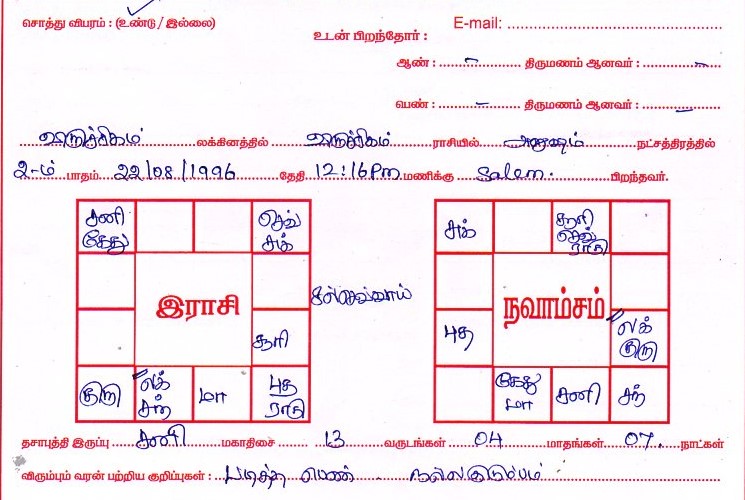 சொத்து விபரம் : (உண்டு / இல்லை)
E-mail:
உடன் பிறந்தோர் :
ஆண் : – திருமணம் ஆனவர் : –
பெண் : – திருமணம் ஆனவர் : –
விருச்சிகம் லக்கினத்தில் விருச்சிகம் ராசியில் அனுஷம் நட்சத்திரத்தில்
2-ம் பாதம் 22/08/1996 தேதி 12:16Pm மணிக்கு Salem. பிறந்தவர்.
சனி கேது
செவ் சுக்
சூரி
குரு
லக் சந்
மா
புத ராகு
இராசி
செவ்வாய்
சுக்
சூரி செவ் ராகு
புத
லக் குரு
கேது மா
சனி
சந்
நவாம்சம்
தசாபுத்தி இருப்பு சனி மகாதிசை 13 வருடங்கள் 04 மாதங்கள் 07. நாட்கள்
விரும்பும் வரன் பற்றிய குறிப்புகள் : படித்த பெண் நல்ல குடும்பம்